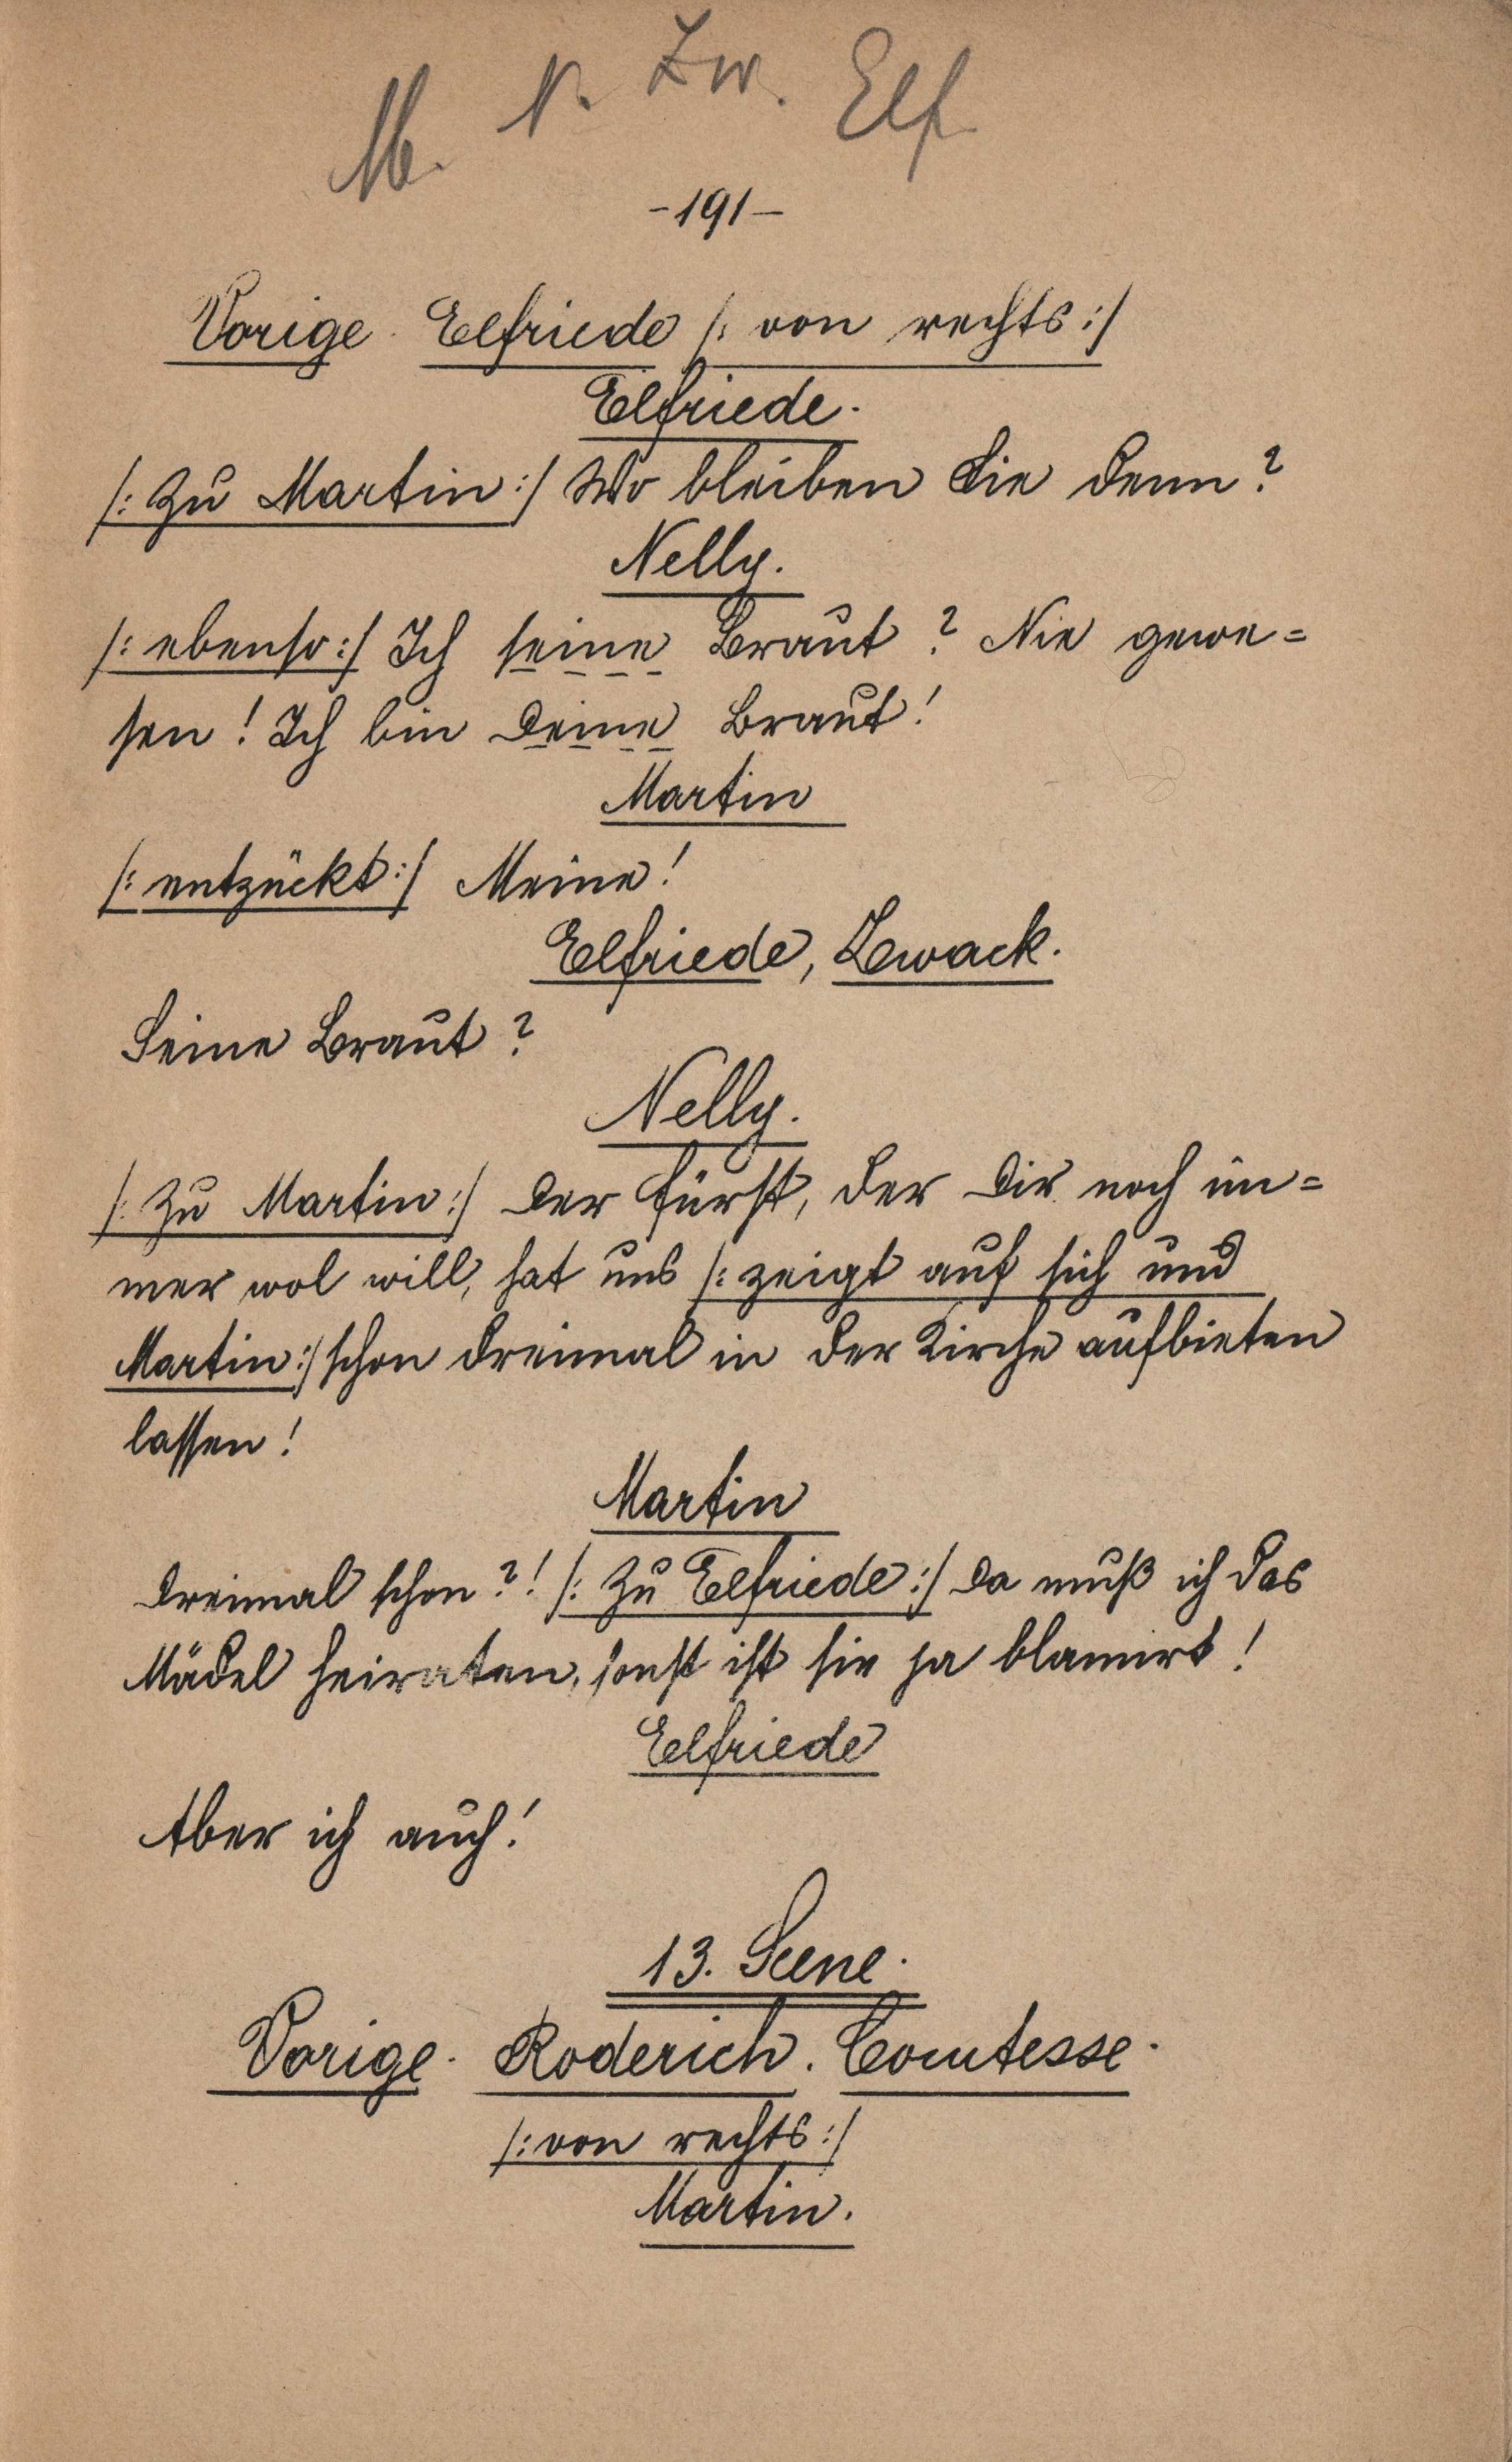 M. N. Zw. Elf.
-191-
Vorige. Elfriede /: von rechts :/
Elfriede.
/: Zu Martin :/ Wo bleiben Sie denn?
Nelly.
/: ebenso :/ Ich seine Braut? Nie gewe=
sen! Ich bin Deine Braut!
Martin
/: entzückt :/ Meine!
Elfriede, Zwack.
Seine Braut?
Nelly.
/: Zu Martin :/ Der Fürst, der Dir noch im=
mer wol will, hat uns /: zeigt auf sich und
Martin :/ schon dreimal in der Kirche aufbieten
lassen!
Martin
Dreimal schon?! /: Zu Elfriede :/ Da muß ich das
Mädel heiraten, sonst ist sie ja blamirt!
Elfriede
Aber ich auch!
13. Scene.
Vorige. Roderich. Comtesse.
/: von rechts :/
Martin.